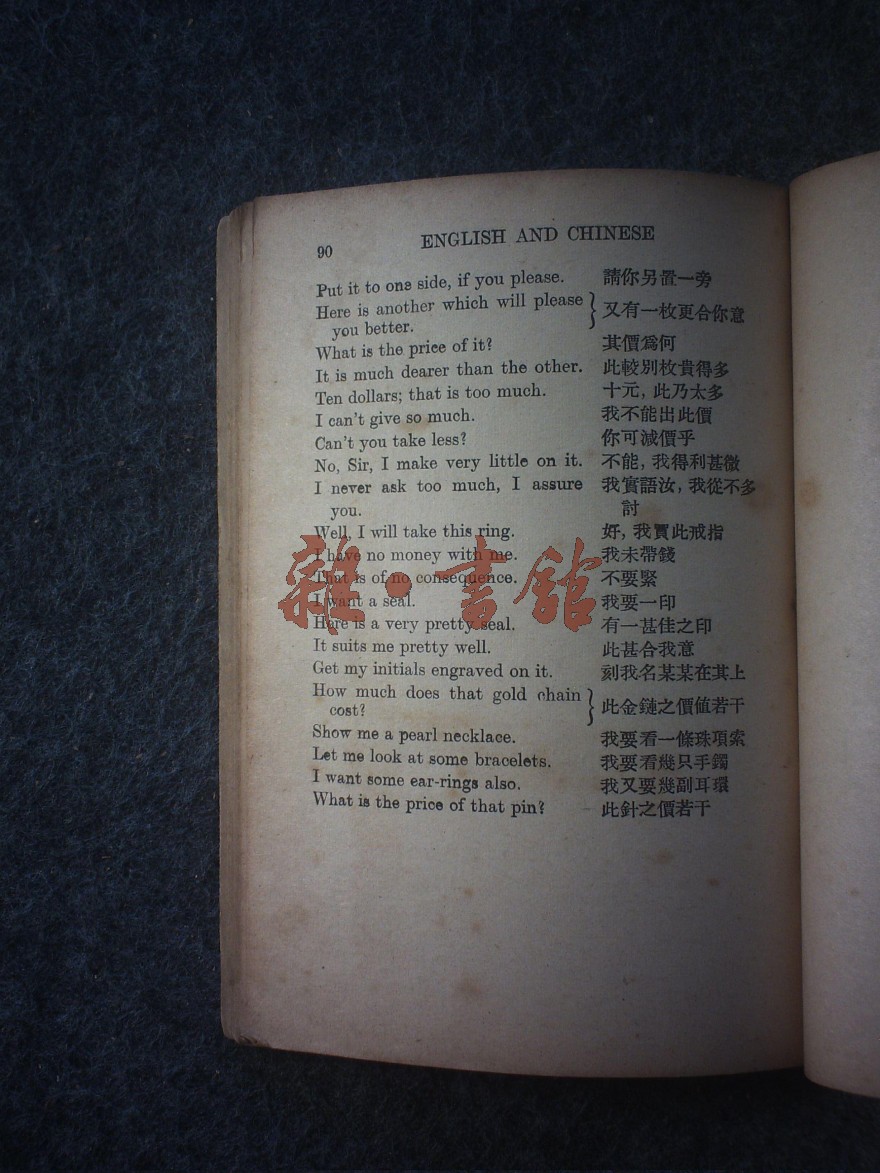 90
ENGLISH AND CHINESE
Put it to one side, if you please. 請你另置一旁
Here is another which will please
you better. 又有一枚更合你意
What is the price of it? 其價爲何
It is much dearer than the other. 此較別枚貴得多
Ten dollars; that is too much. 十元, 此乃太多
I can't give so much. 我不能出此價
Can't you take less? 你可減價乎
No, Sir, I make very little on it. 不能, 我得利甚微
I never ask too much, I assure 我實語汝, 我從不多
you. 討
Well, I will take this ring. 好, 我買此戒指
I have no money with me. 我未帶錢
That is of no consequence. 不要緊
I want a seal. 我要一印
Here is a very pretty seal. 有一甚佳之印
It suits me pretty well. 此甚合我意
Get my initials engraved on it. 刻我名某某在其上
How much does that gold chain
cost? 此金鏈之價值若干
Show me a pearl necklace. 我要看一條珠項索
Let me look at some bracelets. 我要看幾只手鐲
I want some ear-rings also. 我又要幾副耳環
What is the price of that pin? 此針之價若干
雜·書館